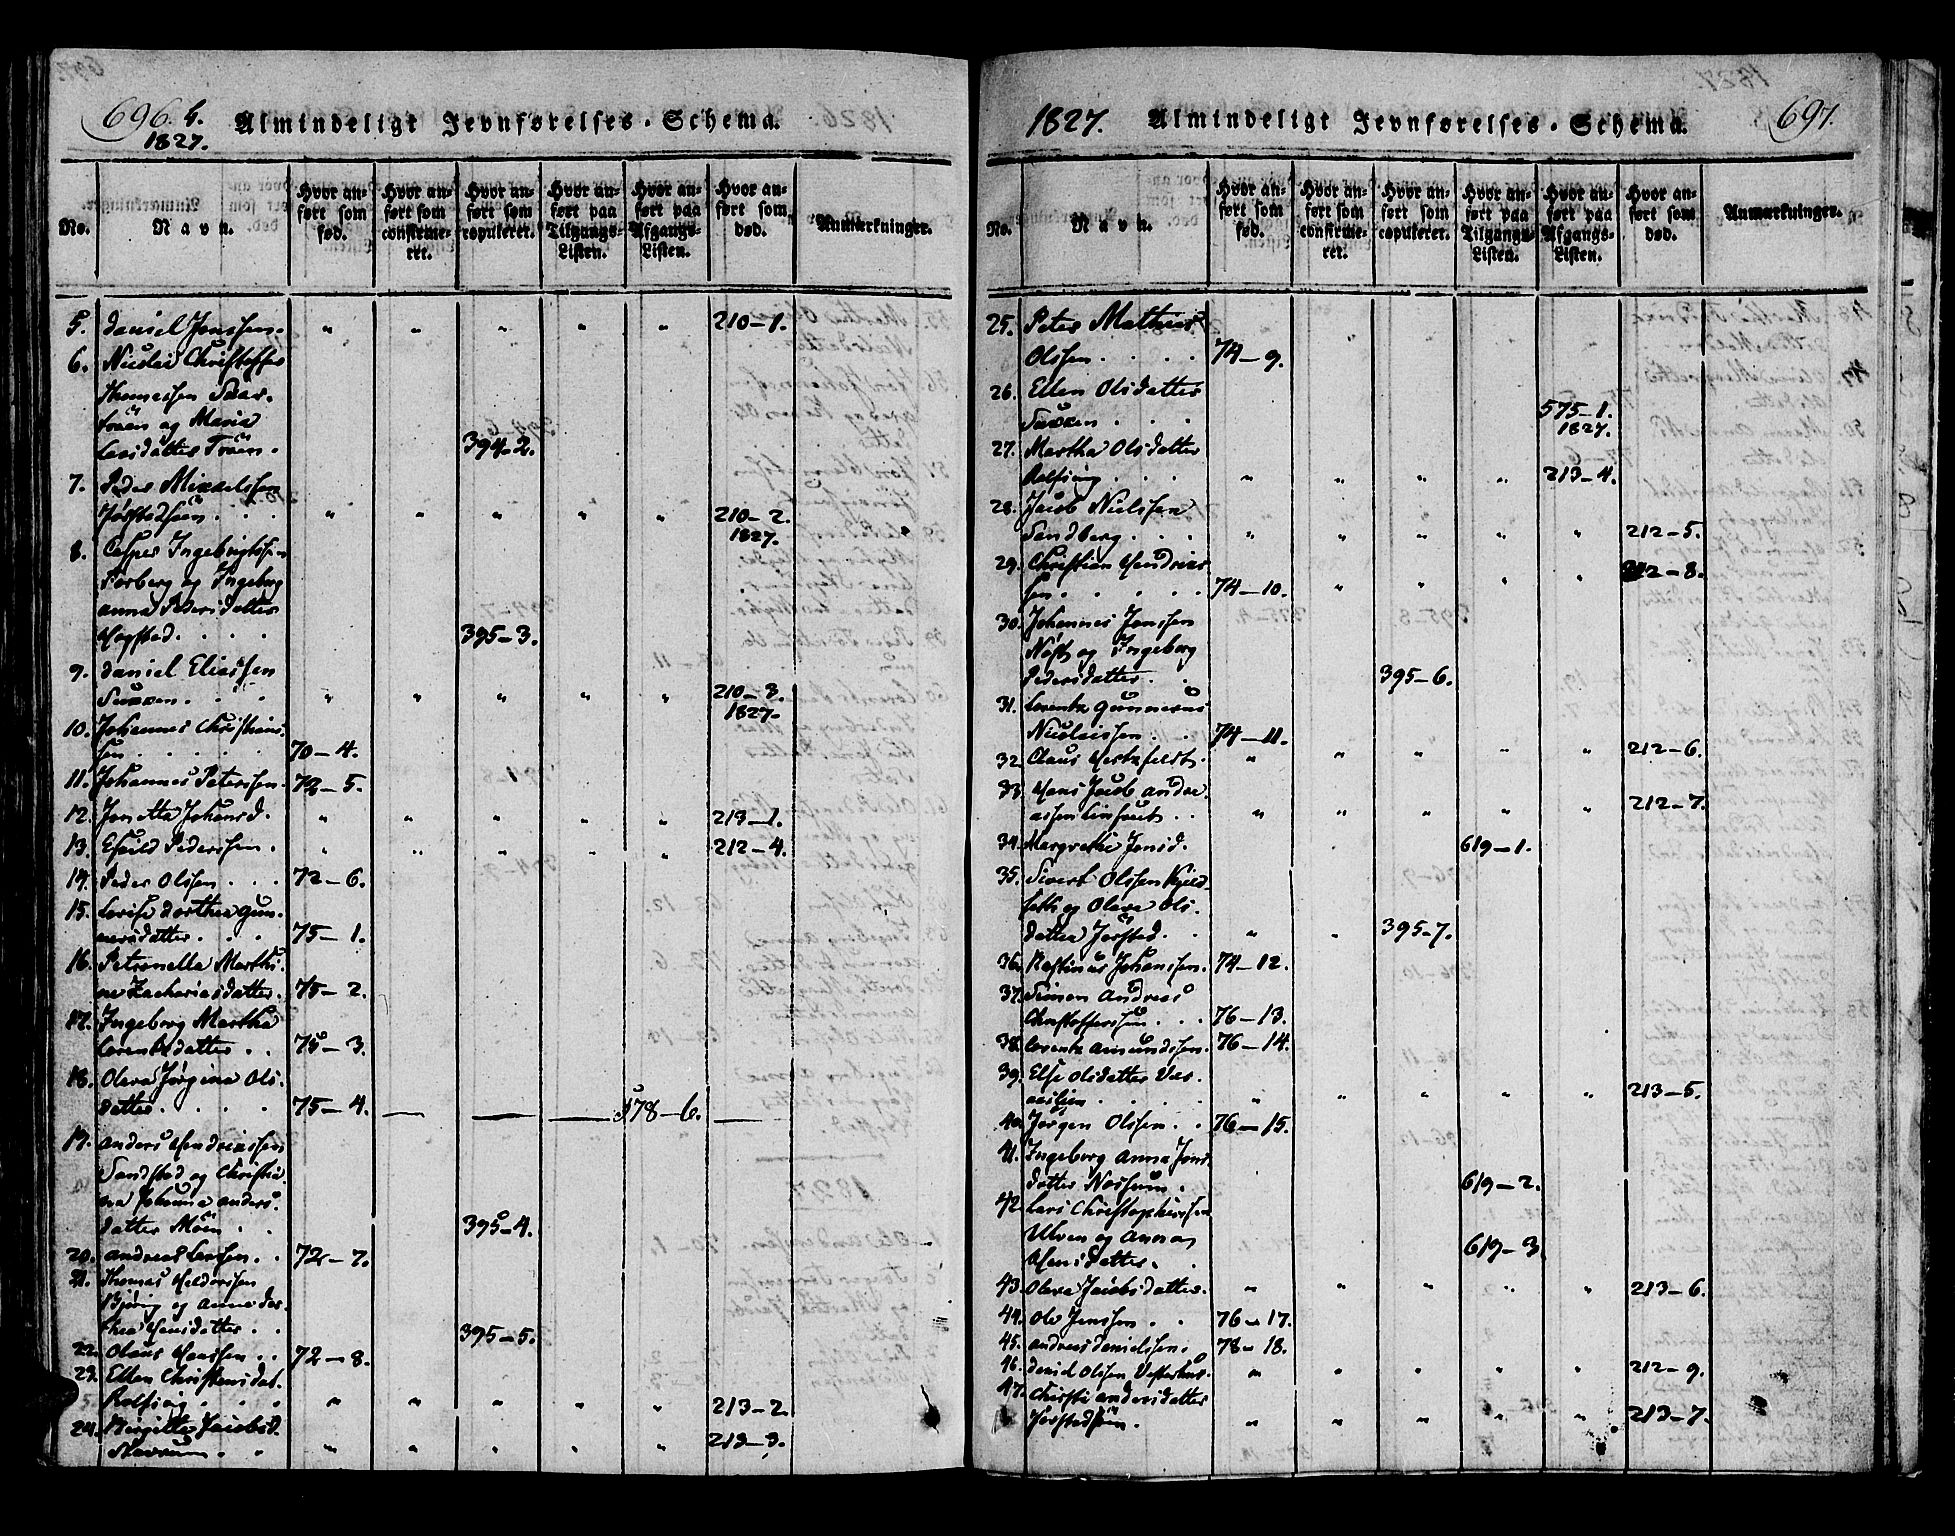 696. b. Almindeligt Jevnførelses-Schema.
1827.
No. Navn. Hvor anført som fød. Hvor anført som confirmeret. Hvor anført som copuleret. Hvor anført paa Tilgangs-Listen. Hvor anført paa Afgangs-Listen. Hvor anført som død. Anmærkninger.
5. Daniel Jonssen. " " " " " 210-1.
6. Nicolai Christopher
Thomessen
og Maria
Larsdatter 394-2.
7. Peder Mikkelssen
" " " " " 210-2.
1827.
8. Casper Ingebrigtssen
Forberg og Ingeborg
Anna Pedersdatter
Hegstad. . . . 395-3.
9. Daniel Eliassen
" " " " " 210-3.
1827.
10. Johannes Christians-
sen . . . . 70-4.
11. Johannes Peterssen. 72-5.
12. Jonetta Johansd. " " " " " 213-1.
13. Eskild Pederssen. " " " " " 212-4.
14. Peder Olssen . . . 72-6.
15. Lovise Dorthea Gun-
nersdatter. . . . 75-1.
16. Petronella Marthi-
ne Zachariasdatter. 75-2.
17. Ingeborg Martha
Lorentzdatter . . 75-3.
18. Oleva Jørgina Ols-
datter. . . . . 75-4. 578-6.
19. Anders Hendrikssen
Sandstad og Christia-
na Johanna Anders-
datter Moen . . 395-4.
20. Andreas Larssen. . 72-7.
21. Thomas
og Anne Dor-
thea Hansdatter. . 395-5.
22. Olaus Hanssen . . 72-8.
23. Ellen Christensdat.
Rolfsing . . . " " " " " 213-2.
24. Birgitte Jacobsd.
" " " " " 213-3.
1827. Almindeligt Jevnførelses-Schema. 697.
No. Navn. Hvor anført som fød. Hvor anført som confirmeret. Hvor anført som copuleret. Hvor anført paa Tilgangs-Listen. Hvor anført paa Afgangs-Listen. Hvor anført som død. Anmærkninger.
25. Peter Mathias
Olssen . . . . 74-9.
26. Ellen Olsdatter
575-1.
1827.
27. Martha Olsdatter
Rolfsing . . . " " " " 213-4.
28. Jacob Nielssen
Sandberg. . . . " " " " " 212-5.
29. Christian Hendriks-
sen. . . . . . 74-10. " " " " 212-8.
30. Johannes Jonssen
og Ingeborg
Pedersdatter. . 395-6.
31. Lorentz Gunnerus
Nicolaissen . . 74-11.
32. Claus Hertzfeldt. " " " " " 212-6.
33. Hans Jacob Andre-
assen . . " " " " " 212-7.
34. Margrethe Jonsd. 619-1.
35. Sivert Olssen Kjeld-
og Oleva Ols-
datter Jørstad. . " " 395-7.
36. Johanssen. 74-12.
37. Simon Andreas
Christopherssen . . . 76-13.
38. Lorentz Amundssen. 76-14.
39. Else Olsdatter
. . . . " " " " " 213-5.
40. Jørgen Olssen . . 76-15.
41. Ingeborg Anna Jons-
datter . 619-2.
42. Lars Christopherssen
Ulven og Anna
Hansdatter. . 619-3.
43. Oleva Jacobsdatter. " " " " " 213-6.
44. Ole Jenssen . . 76-17.
45. Andreas Danielssen. 78-18.
46. Daniel Olssen Vesterhus. " " " " " 212-9.
47. Christi Andersdatter
" " " " " 213-7.